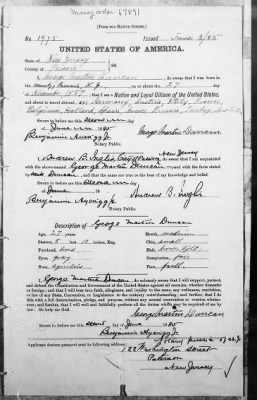 Money order 67891
[FORM FOR NATIVE CITIZEN.]
No. 1975 Issued June 3/85
UNITED STATES OF AMERICA.
STATE OF New Jersey
COUNTY OF
I, George Martin Duncan, do swear that I was born in the
on or about the 27 day
of November 1857; that I am a Native and Loyal Citizen of the United States,
and about to travel abroad. Germany, Austria, Italy, France,
Belgium, Holland, Spain, Greece, Russia, Turkey
Sworn to before me this second day
of June 1885
George Martin Duncan
Benjamin Aycrigg Jr.
Notary Public.
New Jersey
I, Andrew B. Inglis, do swear that I am acquainted
with the above-named George Martin Duncan and with the facts stated
by him, and that the same are true to the best of my knowledge and belief.
Sworn to before me this second day
of June 1885
Andrew B. Inglis
Benjamin Aycrigg Jr.
Notary Public.
Description of George Martin Duncan
Age: 27 years Mouth: medium
Stature: 5 feet 10 inches, Eng. Chin: small
Forehead: broad Hair:
Eyes: gray Complexion: fair
Nose: Face: full
I, George Martin Duncan, do solemnly swear that I will support, protect,
and defend the Constitution and Government of the United States against all enemies, whether domestic
or foreign; and that I will bear true faith, allegiance, and loyalty to the same, any ordinance, resolution,
or law of any State, Convention, or Legislature to the contrary notwithstanding; and further, that I do
this with a full determination, pledge, and purpose, without any mental reservation or evasion whatsoever;
and further, that I will well and faithfully perform all the duties which may be required of me by
law: So help me God.
George Martin Duncan
Sworn to before me this second day of June 1885
Benjamin Aycrigg Jr.
Notary Public of N.J.
Applicant desires passport sent to following address:
122 Washington Street
Paterson
New Jersey